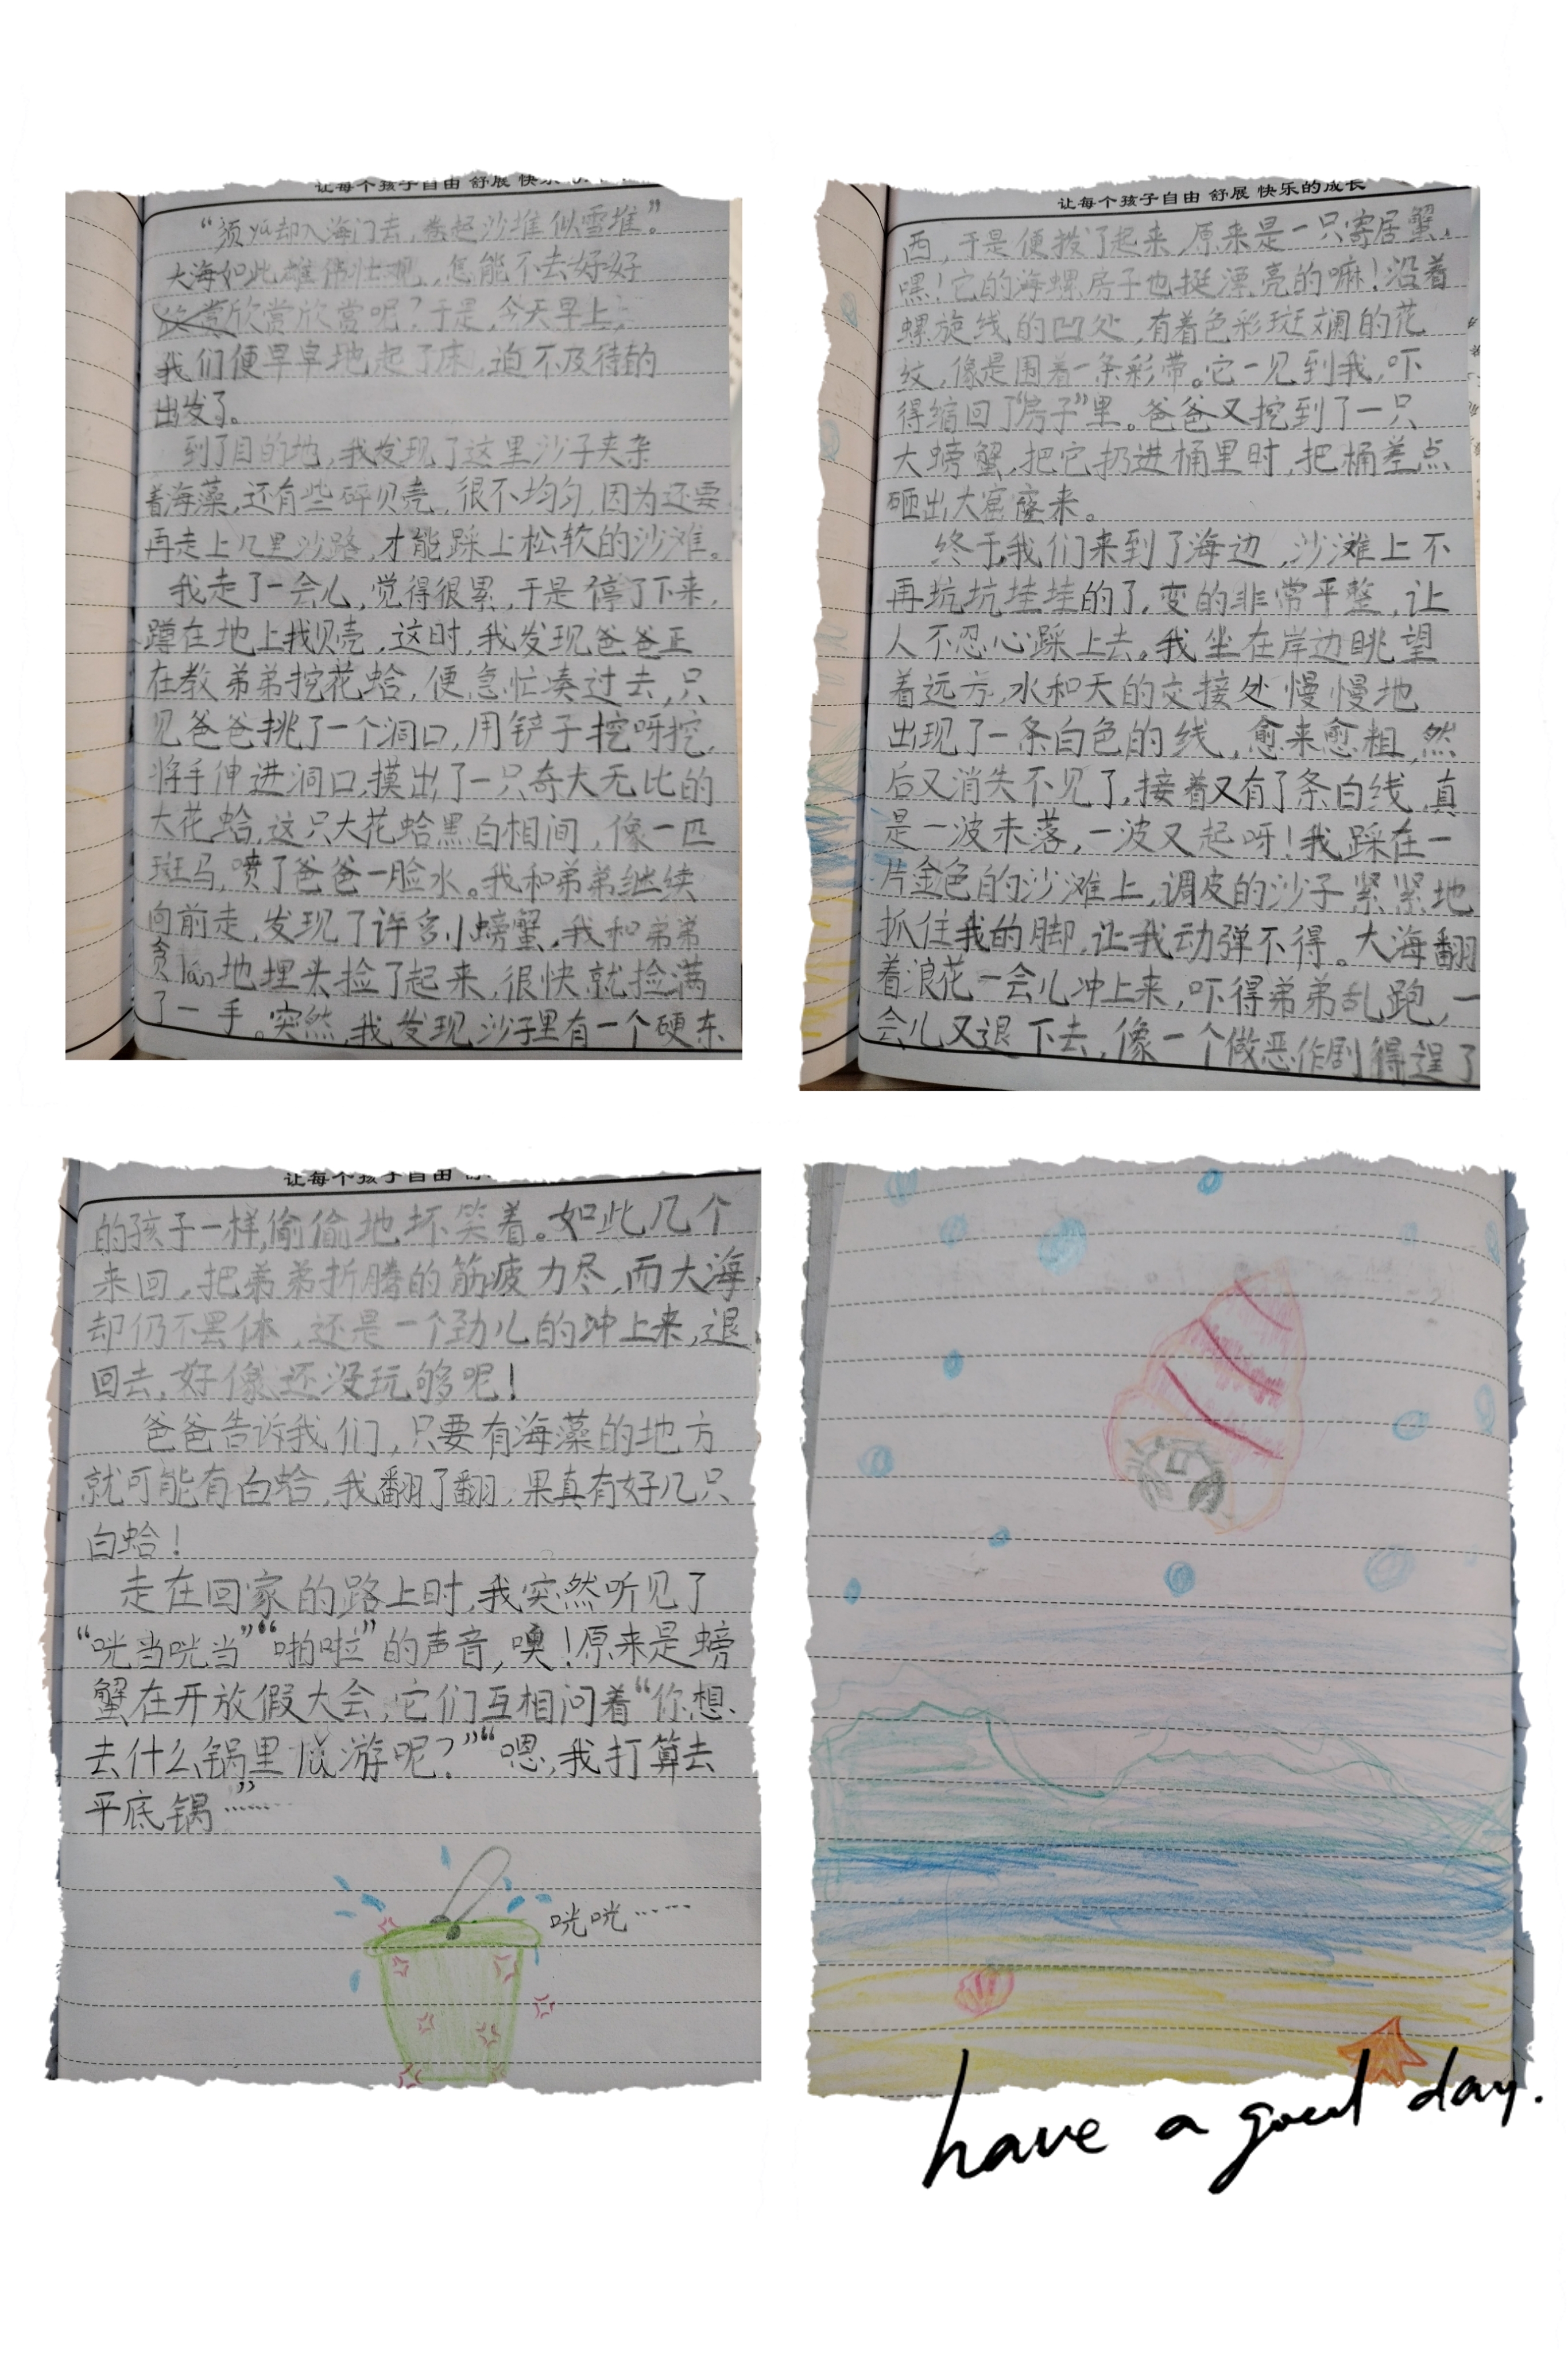 让每个孩子自由 舒展 快乐
“须yú却入海门去，卷起沙堆似雪堆。”
大海如此雄伟壮观，怎能不去好好
欣赏欣赏呢？于是，今天早上，
我们便早早地起了床，迫不及待的
出发了。
到了目的地，我发现了这里沙子夹杂
着海藻，还有些碎贝壳，很不均匀，因为还要
再走上几里沙路，才能踩上松软的沙滩。
我走了一会儿，觉得很累，于是停了下来，
蹲在地上找贝壳，这时，我发现爸爸正
在教弟弟挖花蛤，便急忙凑过去，只
见爸爸挑了一个洞口，用铲子挖呀挖，
将手伸进洞口，摸出了一只奇大无比的
大花蛤，这只大花蛤黑白相间，像一匹
斑马，喷了爸爸一脸水。我和弟弟继续
向前走，发现了许多小螃蟹，我和弟弟
贪lán地埋头捡了起来，很快就捡满
了一手。突然，我发现沙子里有一个硬东
让每个孩子自由 舒展 快乐的成长
西，于是便拨了起来，原来是一只寄居蟹，
嘿！它的海螺房子也挺漂亮的嘛！沿着
螺旋线的凹处，有着色彩斑斓的花
纹，像是围着一条彩带。它一见到我，吓
得缩回了“房子”里。爸爸又挖到了一只
大螃蟹，把它扔进桶里时，把桶差点
砸出大窟窿来。
终于，我们来到了海边，沙滩上不
再坑坑洼洼的了，变的非常平整，让
人不忍心踩上去。我坐在岸边眺望
着远方，水和天的交接处慢慢地
出现了一条白色的线，愈来愈粗，然
后又消失不见了，接着又有了条白线，真
是一波未落，一波又起呀！我踩在一
片金色的沙滩上，调皮的沙子紧紧地
抓住我的脚，让我动弹不得。大海翻
着浪花一会儿冲上来，吓得弟弟乱跑，一
会儿又退下去，像一个做恶作剧得逞了
让每个孩子自由
的孩子一样，偷偷地坏笑着。如此几个
来回，把弟弟折腾的筋疲力尽，而大海
却仍不罢休，还是一个劲儿的冲上来，退
回去，好像还没玩够呢！
爸爸告诉我们，只要有海藻的地方
就可能有白蛤，我翻了翻，果真有好几只
白蛤！
走在回家的路上时，我突然听见了
“咣当咣当”“啪啦”的声音，噢！原来是螃
蟹在开放假大会，它们互相问着“你想
去什么锅里旅游呢？”“嗯，我打算去
平底锅……”
咣咣……
have a good day.